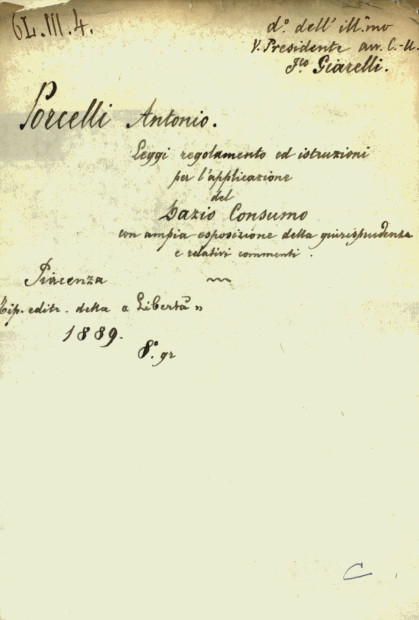 6L.III.4.
d.º dell' ill.mo
V. Presidente avv. C.-U.
Giarelli.
Porcelli Antonio.
Leggi regolamento ed istruzioni
per l'applicazione
del
Dazio Consumo
con ampia esposizione della giurisprudenza
e relativi commenti.
Piacenza
Tip. editr. della « Libertà »
1889.
8.º gr
C